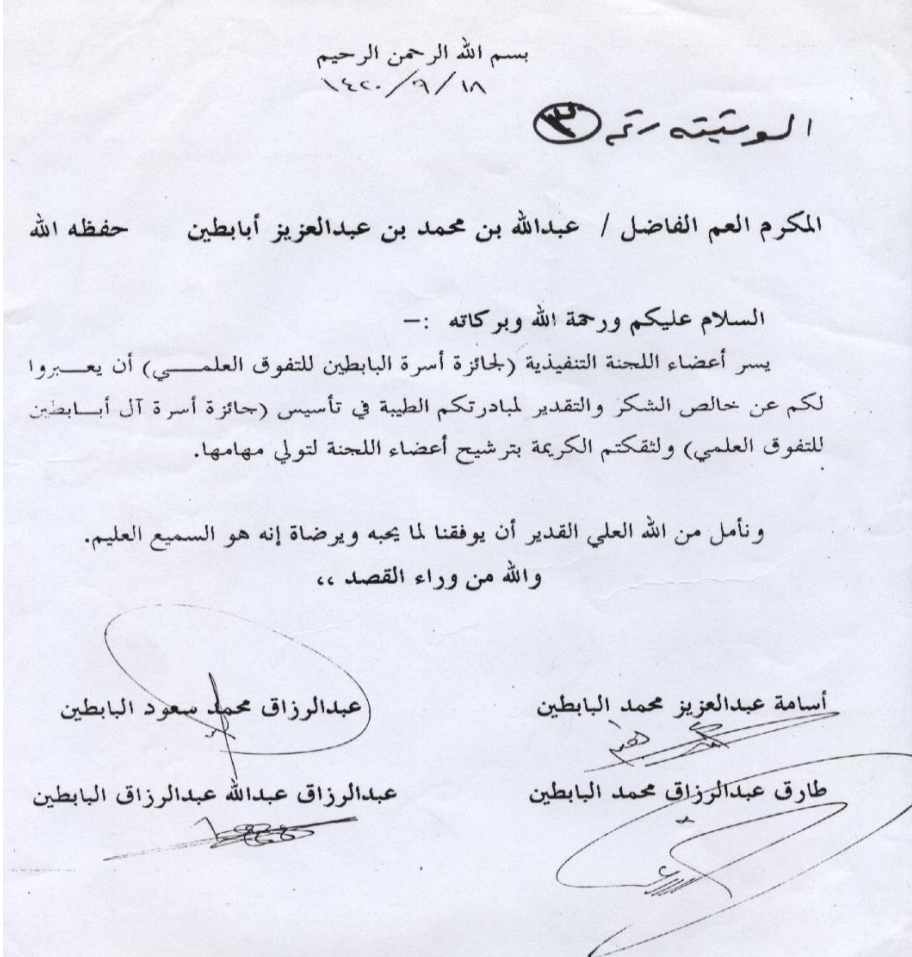 بسم الله الرحمن الرحيم
١٤٢٠/٩/١٨
الوثيقة رقم ٣
المكرم العم الفاضل / عبدالله بن محمد بن عبدالعزيز أبابطين حفظه الله
السلام عليكم ورحمة الله وبركاته :-
يسر أعضاء اللجنة التنفيذية (لجائزة أسرة البابطين للتفوق العلمـــي) أن يعـــبروا
لكم عن خالص الشكر والتقدير لمبادرتكم الطيبة في تأسيس (جائزة أسرة آل أبـــابطين
للتفوق العلمي) ولثقكتم الكريمة بترشيح أعضاء اللجنة لتولي مهامها.
ونأمل من الله العلي القدير أن يوفقنا لما يحبه ويرضاة إنه هو السميع العليم.
والله من وراء القصد ،،
أسامة عبدالعزيز محمد البابطين عبدالرزاق محمد سعود البابطين
طارق عبدالرزاق محمد البابطين عبدالرزاق عبدالله عبدالرزاق البابطين